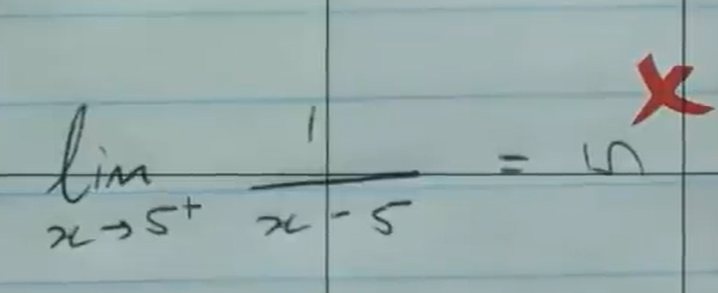 lim x→5⁺ 1/(x-5) = 5